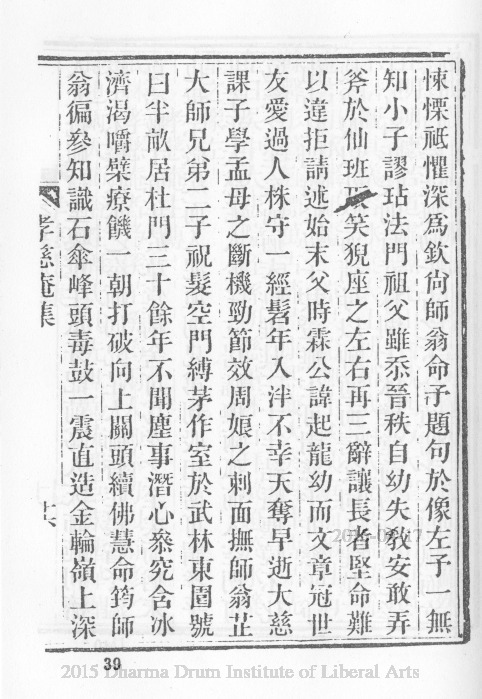 悚慄祗懼深爲欽尙師翁命予題句於像左予一無
知小子謬玷法門祖父雖忝晉秩自幼失敎安敢弄
斧於仙班 笑猊座之左右再三辭讓長者堅命難
以違拒請述始末父時霖公諱起龍幼而文章冠世
友愛過人株守一經髫年入泮不幸天奪早逝大慈
課子學孟母之斷機勁節效周娘之刺面撫師翁芷
大師兄弟二子祝髮空門縛茅作室於武林東園號
曰半畝居杜門三十餘年不聞塵事潛心叅究含冰
濟渴嚼櫱療饑一朝打破向上關頭續佛慧命筠師
翁徧參知識石傘峰頭毒鼓一震直造金輪嶺上深
孝慈菴集
十六
39
2015 Dharma Drum Institute of Liberal Arts